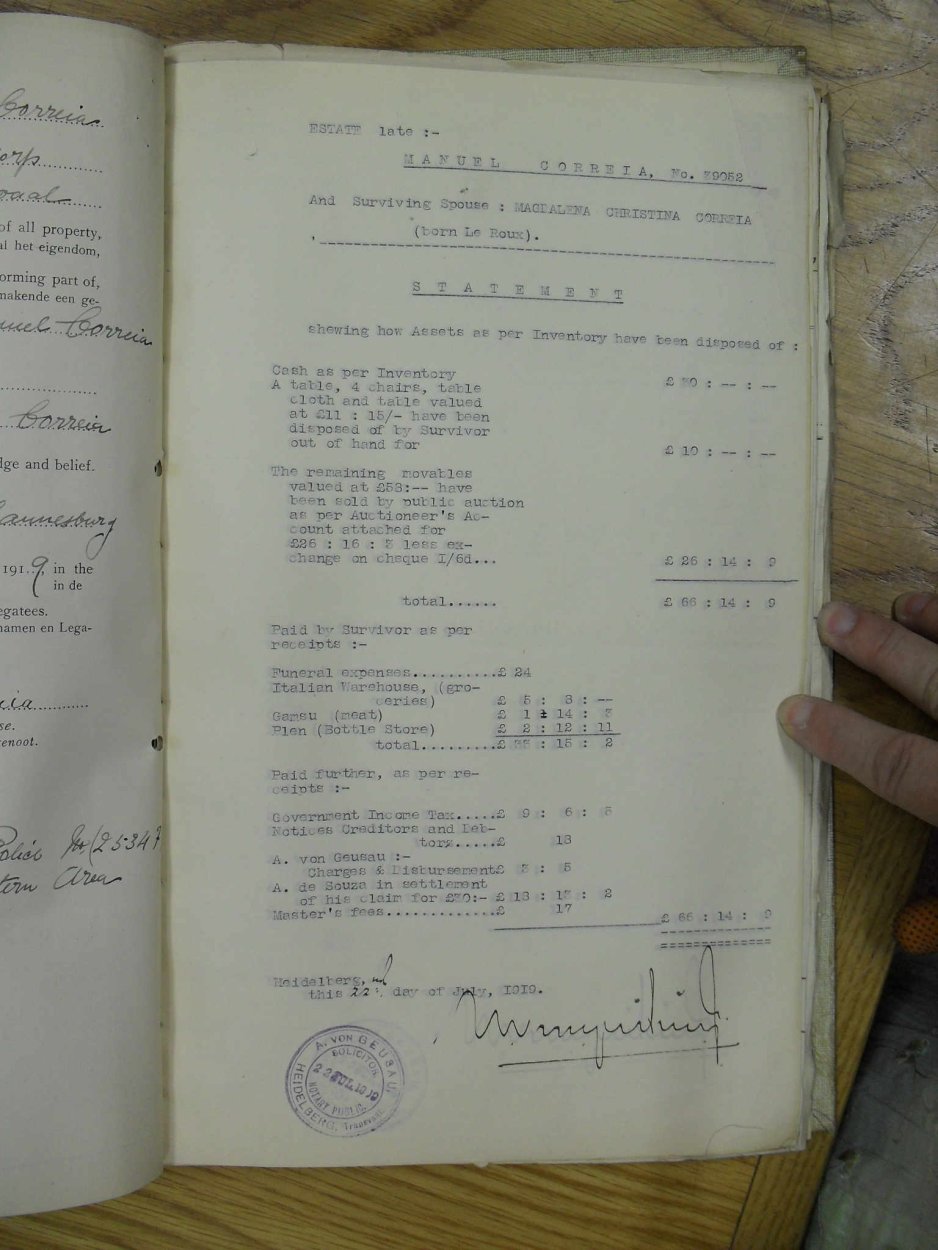 Correia
orp
vaal
of all property,
al het eigendom,
orming part of,
makende een ge-
nuel Correia
Correia
dge and belief.
annesburg
191.9, in the
in de
egatees.
namen en Lega-
cia
se.
enoot.
Police No (25347
tern Area
ESTATE late :-
MANUEL CORREIA, No. 39052
And Surviving Spouse : MAGDALENA CHRISTINA CORREIA
(born Le Roux).
STATEMENT
shewing how Assets as per Inventory have been disposed of :
Cash as per Inventory £ 30 : -- : --
A table, 4 chairs, table
cloth and table valued
at £11 : 15/- have been
disposed of by Survivor
out of hand for £ 10 : -- : --
The remaining movables
valued at £53:-- have
been sold by public auction
as per Auctioneer's Ac-
count attached for
£26 : 16 : 3 less ex-
change on cheque I/6d... £ 26 : 14 : 9
total...... £ 66 : 14 : 9
Paid by Survivor as per
receipts :-
Funeral expenses..........£ 24
Italian Warehouse, (gro-
ceries) £ 5 : 8 : --
Gamsu (meat) £ 1 : 14 : 3
Plen (Bottle Store) £ 2 : 12 : 11
total.........£ 33 : 15 : 2
Paid further, as per re-
ceipts :-
Government Income Tax.....£ 9 : 6 : 5
Notices Creditors and Deb-
tors.....£ 18
A. von Geusau :-
Charges & Disbursements£ 3 : 5
A. de Souza in settlement
of his claim for £30:- £ 18 : 13 : 2
Master's fees.............£ 17 £ 66 : 14 : 9
Heidelberg,
this 22nd day of July, 1919.
A. VON GEUSAU
SOLICITOR
22 JUL 1919
NOTARY PUBLIC.
HEIDELBERG, Transvaal.